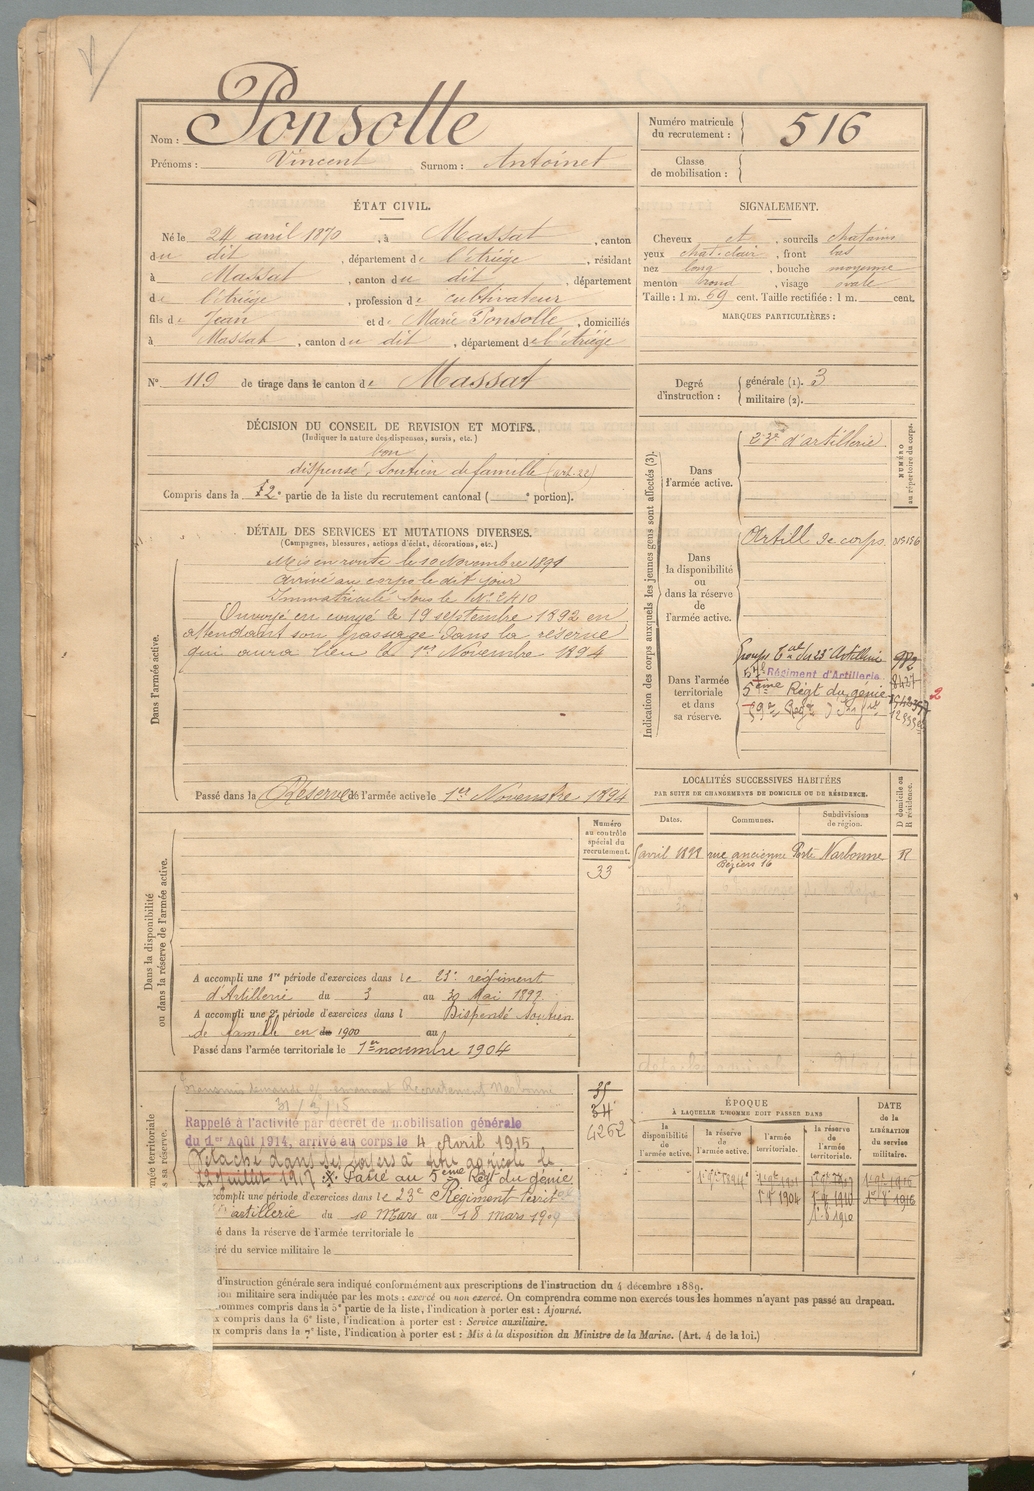 Nom : Ponsolle
Prénoms : Vincent Surnom : Antoinet
Numéro matricule du recrutement : 516
Classe de mobilisation :
ÉTAT CIVIL.
Né le 24 avril 1870, à Massat, canton
du dit, département de l'Ariège, résidant
à Massat, canton du dit, département
de l'Ariège, profession de cultivateur
fils de Jean et de Marie Ponsolle, domiciliés
à Massat, canton du dit, département de l'Ariège
No 119 de tirage dans le canton de Massat
SIGNALEMENT.
Cheveux et, sourcils chatains
yeux chat. clair, front bas
nez long, bouche moyenne
menton rond, visage ovale
Taille : 1 m. 59 cent. Taille rectifiée : 1 m. cent.
MARQUES PARTICULIÈRES :
Degré d'instruction : générale (1). 3
militaire (2).
DÉCISION DU CONSEIL DE REVISION ET MOTIFS.
(Indiquer la nature des dispenses, sursis, etc.)
bon
dispensé, soutien de famille (art. 22)
Compris dans la 2e partie de la liste du recrutement cantonal ( e portion).
DÉTAIL DES SERVICES ET MUTATIONS DIVERSES.
(Campagnes, blessures, actions d'éclat, décorations, etc.)
Dans l'armée active.
Mis en route le 10 Novembre 1891
arrivé au corps le dit jour
Immatriculé sous le No 2410
Envoyé en congé le 19 septembre 1892 en
attendant son passage dans la réserve
qui aura lieu le 1er Novembre 1894
Passé dans la Réserve de l'armée active le 1er Novembre 1894
Indication des corps auxquels les jeunes gens sont affectés (3).
NUMÉRO au répertoire du corps.
Dans l'armée active.
23e d'artillerie
Dans la disponibilité ou dans la réserve de l'armée active.
Artill de corps
Dans l'armée territoriale et dans sa réserve.
Groupe Tal du 23e Artillerie
57e Régiment d'Artillerie
5ème Régt du génie
LOCALITÉS SUCCESSIVES HABITÉES
PAR SUITE DE CHANGEMENTS DE DOMICILE OU DE RÉSIDENCE.
Dates. Communes. Subdivisions de région. D domicile ou R résidence.
avril 1898 rue ancienne Porte Narbonne R
Béziers 16
Numéro au contrôle spécial du recrutement.
33
Dans la disponibilité ou dans la réserve de l'armée active.
A accompli une 1re période d'exercices dans le 23e régiment
d'Artillerie du 3 au 30 Mai 1897
A accompli une 2e période d'exercices dans l Dispensé soutien
de famille en 1900 au
Passé dans l'armée territoriale le 1er novembre 1904
31/3/15
Rappelé à l'activité par décret de mobilisation générale
du 1er Août 1914, arrivé au corps le 4 Avril 1915
Détaché dans ses foyers à titre agricole le
22 juillet 1917 Passé au 5ème Régt du génie
ccompli une période d'exercices dans le 23e Régiment territ
d'artillerie du 10 Mars au 18 mars 1909
sé dans la réserve de l'armée territoriale le
ré du service militaire le
34
4262
ÉPOQUE
À LAQUELLE L'HOMME DOIT PASSER DANS
la disponibilité de l'armée active. la réserve de l'armée active. l'armée territoriale. la réserve de l'armée territoriale.
DATE de LIBÉRATION du service militaire.
d'instruction générale sera indiqué conformément aux prescriptions de l'instruction du 4 décembre 1889.
ion militaire sera indiquée par les mots : exercé ou non exercé. On comprendra comme non exercés tous les hommes n'ayant pas passé au drapeau.
ommes compris dans la 5e partie de la liste, l'indication à porter est : Ajourné.
x compris dans la 6e liste, l'indication à porter est : Service auxiliaire.
ux compris dans la 7e liste, l'indication à porter est : Mis à la disposition du Ministre de la Marine. (Art. 4 de la loi.)